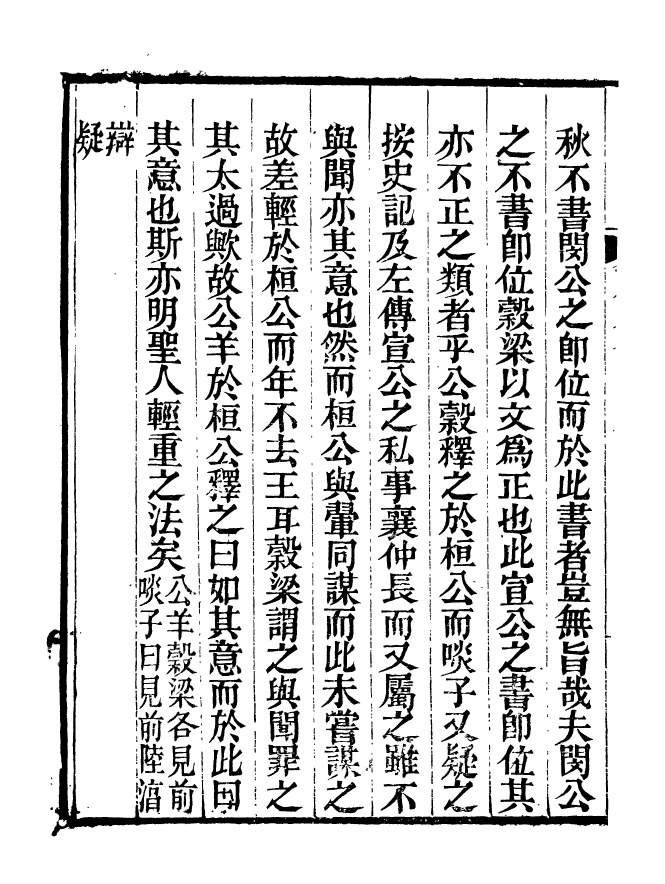 秋不書閔公之卽位而於此書者豈無旨哉夫閔公
之不書卽位穀梁以文爲正也此宣公之書卽位其
亦不正之類者乎公穀釋之於桓公而啖子又疑之
按史記及左傳宣公之私事襄仲長而又屬之雖不
與聞亦其意也然而桓公與翬同謀而此未嘗謀之
故差輕於桓公而年不去王耳穀梁謂之與聞罪之
其太過歟故公羊於桓公釋之曰如其意而於此曰
其意也斯亦明聖人輕重之法矣公羊穀梁各見前
啖子曰見前陸淳
辯
疑